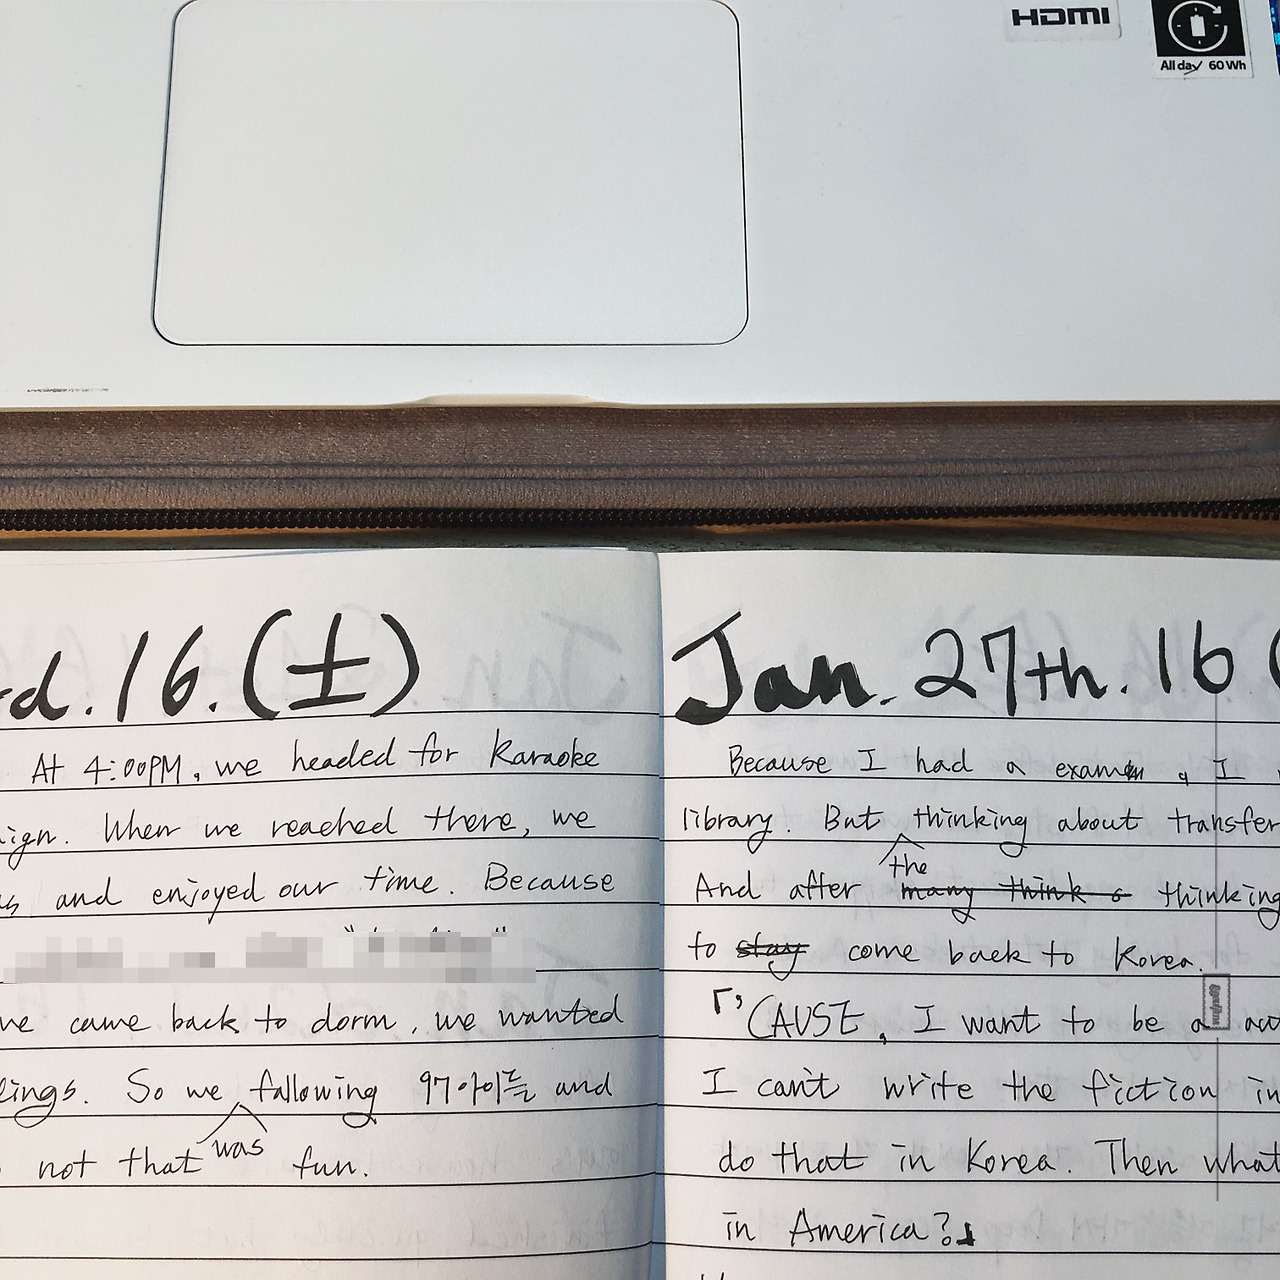 HDMI
All day 60 Wh
rd. 16. (土)
At 4:00PM, we headed for karaoke
ign. When we reached there, we
and enjoyed our time. Because
we came back to dorm, we wanted
lings. So we following 97아이들 and
was
not that fun.
Jan. 27th. 16 (
Because I had a exam, I
library. But thinking about transfer
the
And after many think thinking
to stay come back to Korea.
「'CAUSE, I want to be a
I can't write the fiction in
do that in Korea. Then what
in America?」